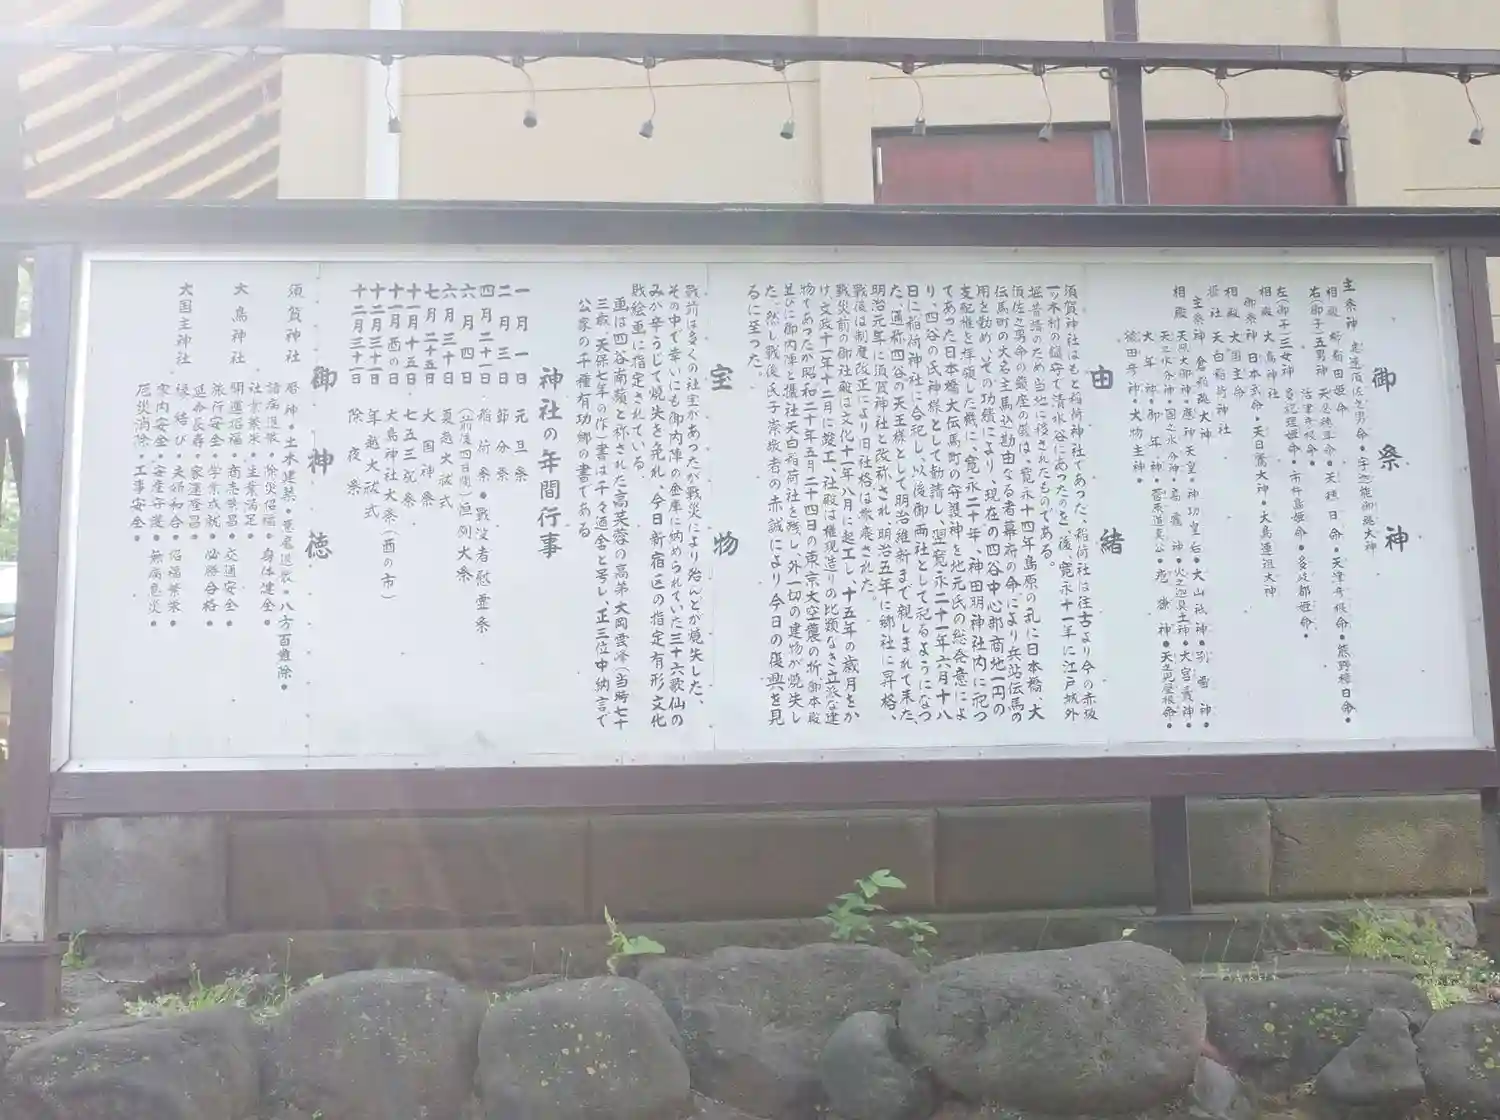 御祭神
主祭神 建速須佐之男命・宇迦能御魂大神
相殿 櫛稲田姫命
右(御子)五男神 天忍穂耳命・天穂日命・天津彦根命・熊野樟日命・
活津彦根命・
左(御子)三女神 多紀理姫命・市杵島姫命・多岐都姫命・
相殿 大鳥神社
御祭神 日本武命・天日鷲大神・大鳥連祖大神
相殿 大国主命
摂社 天白稲荷神社
主祭神 倉稲魂大神
相殿 天照大御神・應神天皇・神功皇后・大山祇神・別雷神・
天之水分神・国之水分神・高龗神・火之迦具土神・大宮賣神・
大年神・御年神・菅原道真公・志那神・天之児屋根命・
猿田彦神・大物主神・
由緒
須賀神社はもと稲荷神社であった、稲荷社は往古より今の赤坂
一ッ木村の鎮守で清水谷にあったのを、後、寛永十一年に江戸城外
堀普請のため当地に移されたものである。
須佐之男命の霊座の儀は、寛永十四年島原の乱に日本橋、大
伝馬町の大名主馬込勘由なる者幕府の命により兵站伝馬の
用を勤め、その功績により、現在の四谷中心部商地一円の
支配権を拝領した縁に、寛永二十年、神田明神社内に祀つ
てあった日本橋大伝馬町の守護神を地元氏の総発意によ
り、四谷の氏神様として勧請し、翌寛永二十一年六月十八
日に稲荷神社に合祀し、以後御両社として祀るようになっ
た、通称四谷の天王様として明治維新まで親しまれて来た、
明治元年に須賀神社と改称され、明治五年に郷社に昇格、
戦後は制度改正により旧社格は撤廃された。
戦災前の御社殿は文化十一年八月に起工し、十五年の歳月をか
け、文政十一年十二月に竣工、社殿は権現造りの比類なき立派な建
物であったが昭和二十年五月二十四日の東京大空襲の折、御本殿
並びに御内陣と攝社天白稲荷社を残し、外一切の建物が焼失し
た、然し戦後氏子崇敬者の赤誠により今日の復興を見
るに至った
宝物
戦前は多くの社宝があったが戦災により殆んどが焼失した、
その中で幸いにも御内陣の金庫に納められていた三十六歌仙の
みが辛うじて焼失を免れ、今日新宿区の指定有形文化
財絵画に指定されている。
画は四谷南頻と称された高芙蓉の高弟大岡雲峰(当時七十
三歳、天保七年の作)書は千々廼舎と号し、正三位中納言で
公家の千種有功卿の書である
神社の年間行事
一月一日 元旦祭
二月三日 節分祭
四月二十一日 稲荷祭・戦没者慰霊祭
六月四日 (前後四日間)恒例大祭
六月三十日 夏越大祓式
七月二十五日 大国神祭
十一月十五日 七五三祝祭
十一月酉の日 大鳥神社大祭(酉の市)
十二月三十一日 年越大祓式
十二月三十一日 除夜祭
御神徳
須賀神社 厄神・土木建築・悪鬼退散・八方百難除・
諸病退散・除災招福・身体健全・
大鳥神社 社業繁栄・生業満足・
開運招福・商売繁昌・交通安全・
旅行安全・学業成就・必勝合格・
延命長寿・家運隆昌・
大国主神社 縁結び・夫婦和合・招福繁栄・
家内安全・安産守護・無病息災・
厄災消除・工事安全・